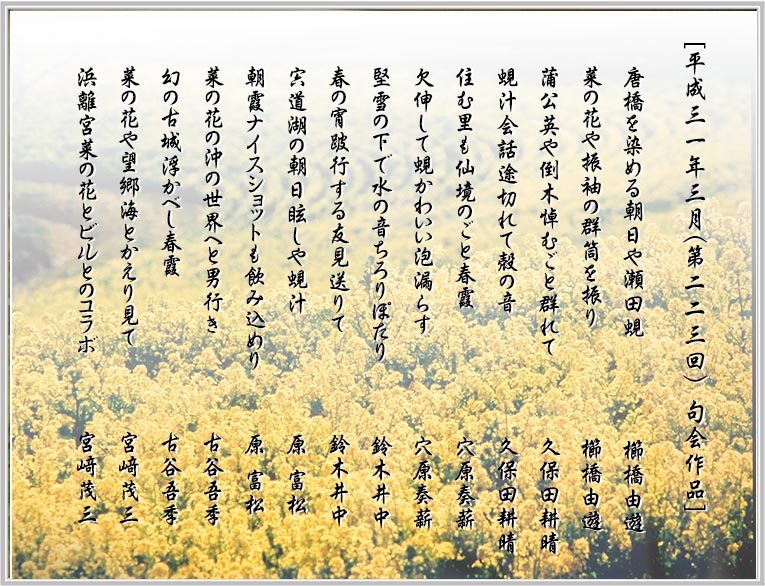 ［平成三一年三月（第二二三回） 句会作品］
唐橋を染める朝日や瀬田蜆 櫛橋由遊
菜の花や振袖の群筒を振り 櫛橋由遊
蒲公英や倒木悼むごと群れて 久保田耕晴
蜆汁会話途切れて殻の音 久保田耕晴
住む里も仙境のごと春霞 穴原奏薪
欠伸して蜆かわいい泡漏らす 穴原奏薪
堅雪の下で水の音ちろりぽたり 鈴木井中
春の宵跛行する友見送りて 鈴木井中
宍道湖の朝日眩しや蜆汁 原 富松
朝霞ナイスショットも飲み込めり 原 富松
菜の花の沖の世界へと男行き 古谷吾季
幻の古城浮かべし春霞 古谷吾季
菜の花や望郷海とかえり見て 宮﨑茂三
浜離宮菜の花とビルとのコラボ 宮﨑茂三